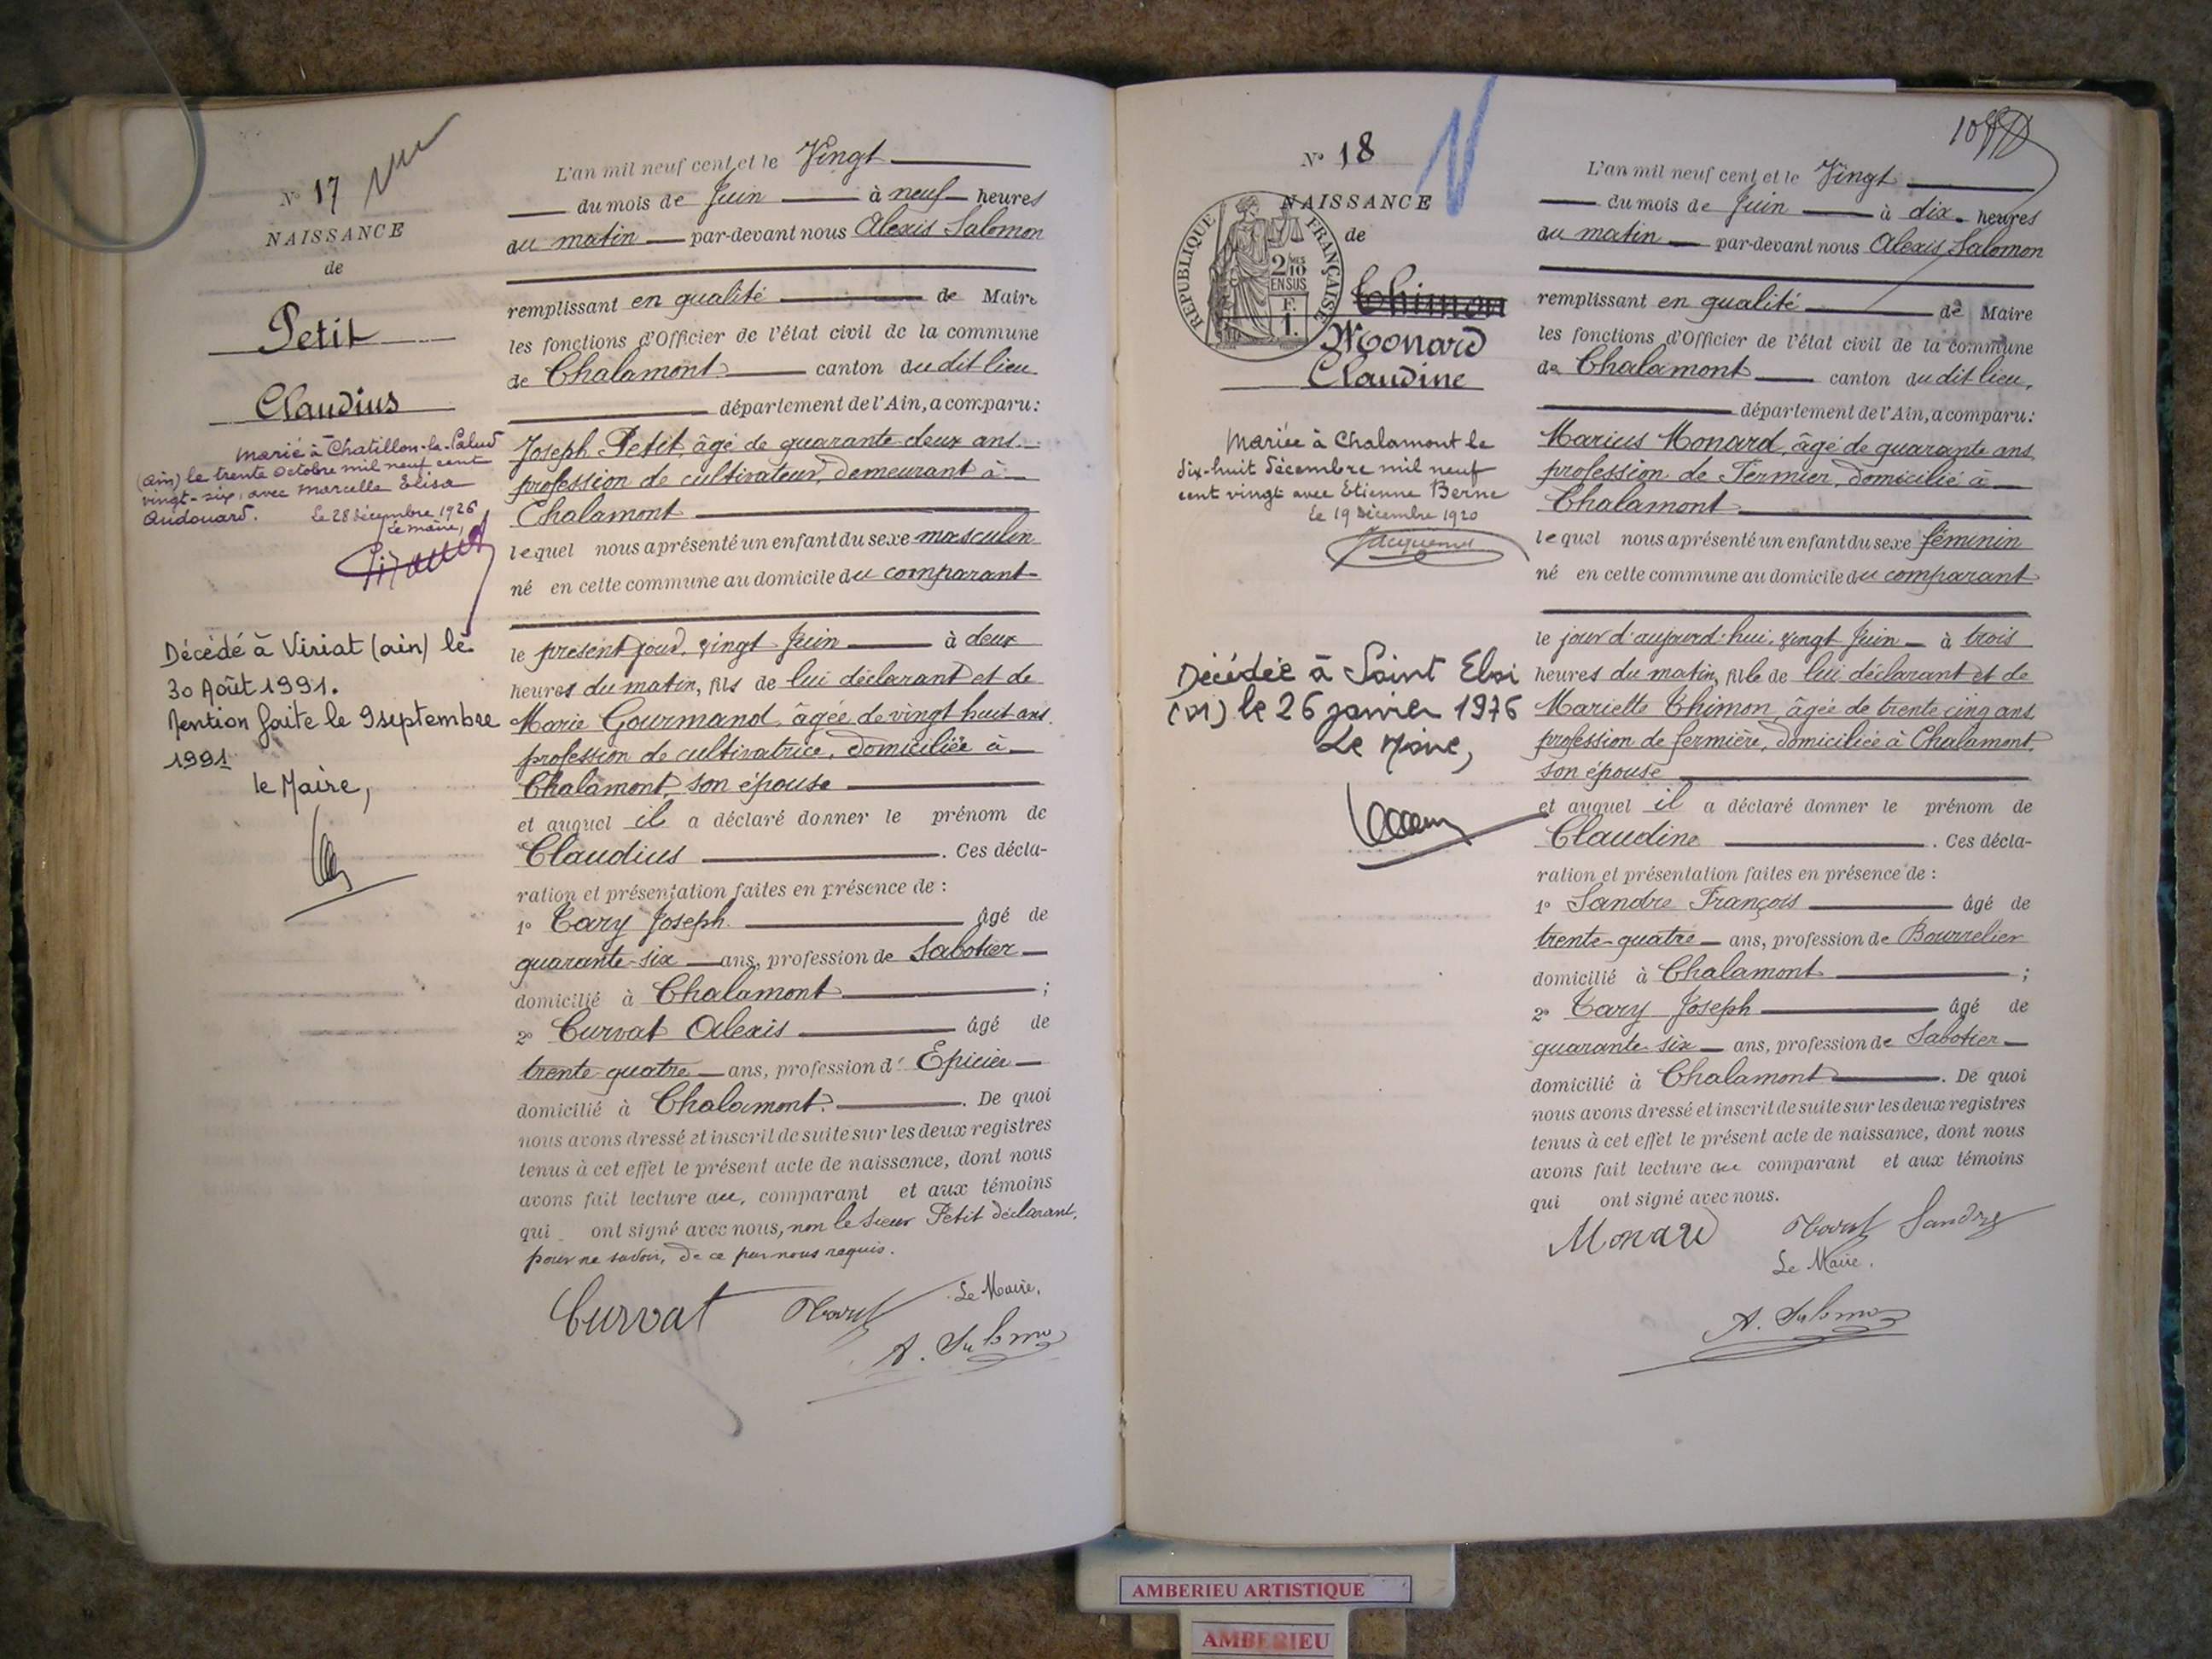 N° 17
NAISSANCE
de
Petit
Claudius
Marié à Chatillon-la-Palud
(Ain) le trente Octobre mil neuf cent
vingt-six, avec Marcelle Elisa
Audouard. Le 28 décembre 1926
Le maire,
Décédé à Viriat (ain) le
30 Août 1991.
Mention faite le 9 septembre
1991
le Maire,
L'an mil neuf cent, et le Vingt
du mois de Juin à neuf heures
du matin par-devant nous Alexis Salomon
remplissant en qualité de Maire
les fonctions d'Officier de l'état civil de la commune
de Chalamont canton du dit lieu
département de l'Ain, a comparu:
Joseph Petit, âgé de quarante deux ans
profession de cultivateur, demeurant à
Chalamont
lequel nous a présenté un enfant du sexe masculin
né en cette commune au domicile du comparant
le présent jour, vingt Juin à deux
heures du matin, fils de lui déclarant et de
Marie Gourmand, âgée de vingt huit ans.
profession de cultivatrice, domiciliée à
Chalamont, son épouse
et auquel il a déclaré donner le prénom de
Claudius. Ces décla-
ration et présentation faites en présence de :
1° Tary Joseph âgé de
quarante-six ans, profession de Sabotier
domicilié à Chalamont ;
2° Curvat Alexis âgé de
trente-quatre ans, profession d' Epicier
domicilié à Chalamont. De quoi
nous avons dressé et inscrit de suite sur les deux registres
tenus à cet effet le présent acte de naissance, dont nous
avons fait lecture au, comparant et aux témoins
qui ont signé avec nous, non le sieur Petit déclarant,
pour ne savoir, de ce par nous requis.
Curvat
Le Maire,
A. Salomon
N° 18
NAISSANCE
de
REPUBLIQUE FRANÇAISE
2/10 MES
EN SUS
F.
1.
Thimon
Monard
Claudine
Mariée à Chalamont le
dix-huit décembre mil neuf
cent vingt avec Etienne Berne
Le 19 Décembre 1920
Décédée à Saint Eloi
(01) le 26 janvier 1976
Le Maire,
L'an mil neuf cent, et le Vingt
du mois de Juin à dix heures
du matin par-devant nous Alexis Salomon
remplissant en qualité de Maire
les fonctions d'Officier de l'état civil de la commune
de Chalamont canton du dit lieu,
département de l'Ain, a comparu:
Marius Monard, âgé de quarante ans
profession de Fermier, domicilié à
Chalamont
lequel nous a présenté un enfant du sexe féminin
né en cette commune au domicile du comparant
le jour d'aujourd'hui, vingt Juin à trois
heures du matin, fille de lui déclarant et de
Mariette Thimon, âgée de trente cinq ans
profession de fermière, domiciliée à Chalamont,
son épouse
et auquel il a déclaré donner le prénom de
Claudine. Ces décla-
ration et présentation faites en présence de :
1° Sandre François âgé de
trente-quatre ans, profession de Bourrelier
domicilié à Chalamont ;
2° Tary Joseph âgé de
quarante six ans, profession de Sabotier
domicilié à Chalamont. De quoi
nous avons dressé et inscrit de suite sur les deux registres
tenus à cet effet le présent acte de naissance, dont nous
avons fait lecture au comparant et aux témoins
qui ont signé avec nous.
Monard Sandre
Le Maire,
A. Salomon
AMBERIEU ARTISTIQUE
AMBERIEU